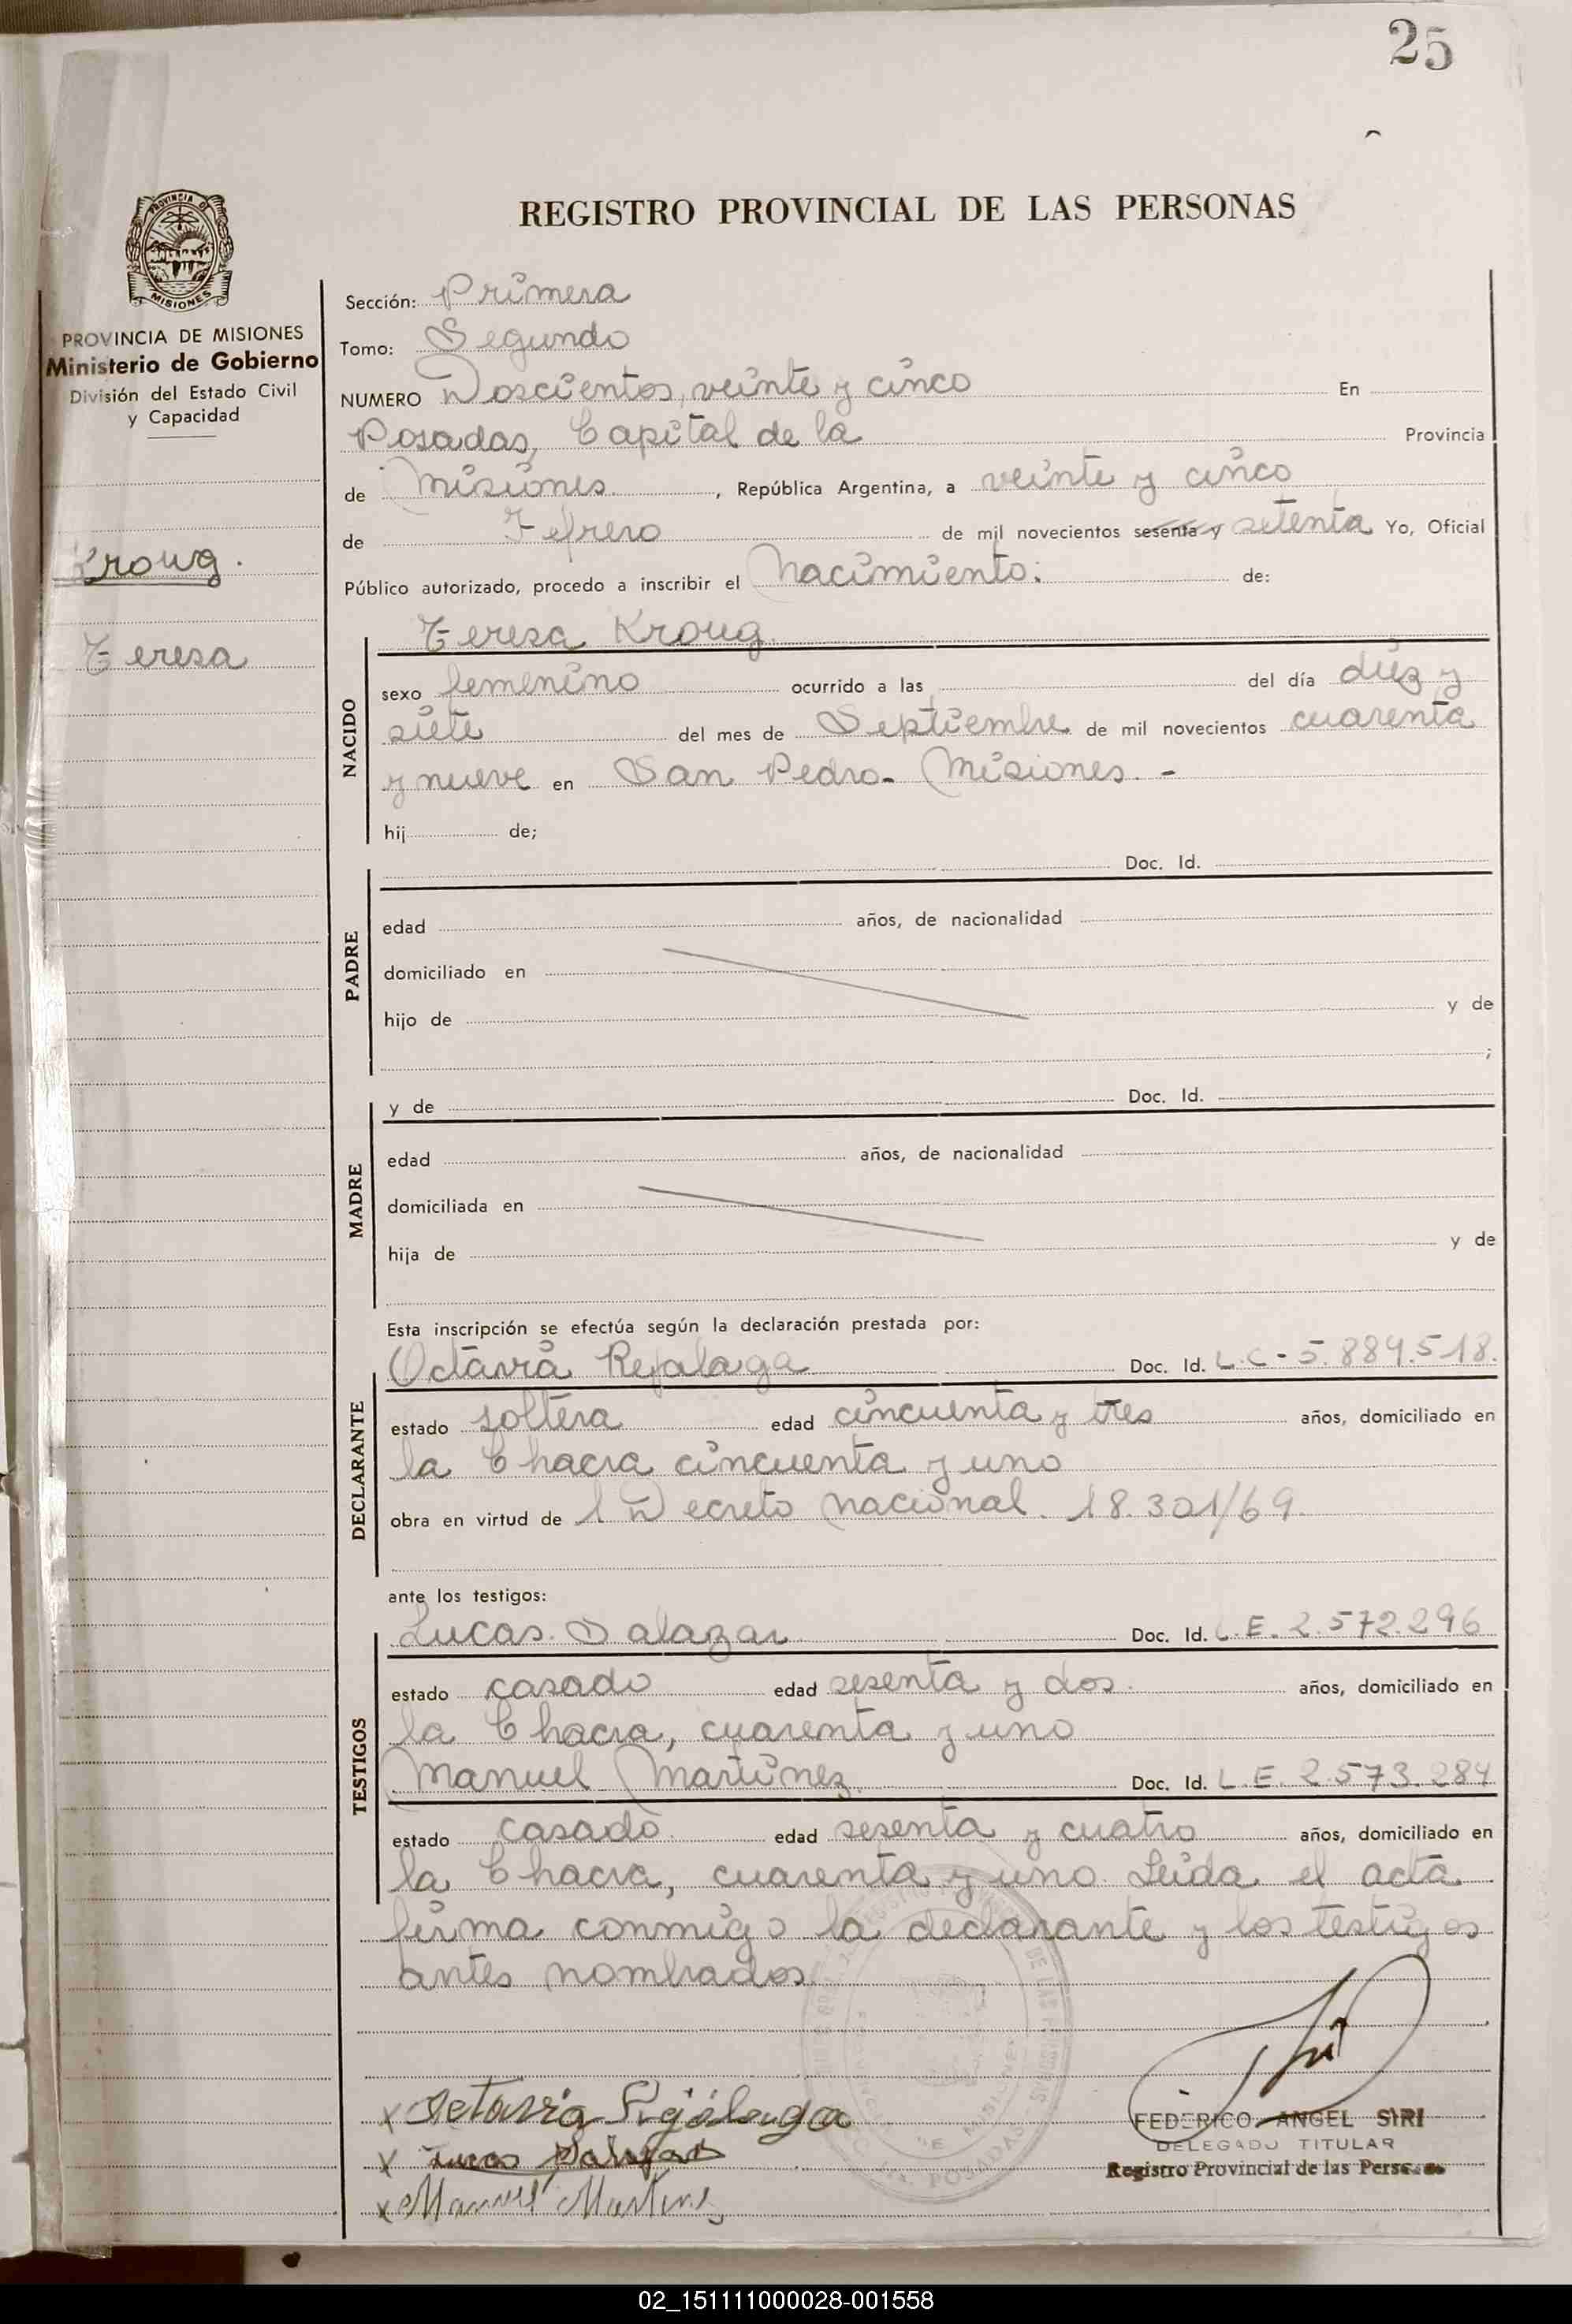 25
REGISTRO PROVINCIAL DE LAS PERSONAS
PROVINCIA DE
MISIONES
PROVINCIA DE MISIONES
Ministerio de Gobierno
División del Estado Civil
y Capacidad
Kroug.
Teresa
Sección: Primera
Tomo: Segundo
NUMERO Doscientos, veinte y cinco En
Posadas, Capital de la Provincia
de Misiones , República Argentina, a veinte y cinco
de Febrero de mil novecientos sesenta y setenta Yo, Oficial
Público autorizado, procedo a inscribir el Nacimiento: de:
NACIDO
Teresa Kroug.
sexo femenino ocurrido a las del día diez y
siete del mes de Septiembre de mil novecientos cuarenta
y nueve en San Pedro - Misiones. -
hij de;
PADRE
Doc. Id.
edad años, de nacionalidad
domiciliado en
hijo de y de
;
MADRE
y de Doc. Id.
edad años, de nacionalidad
domiciliada en
hija de y de
Esta inscripción se efectúa según la declaración prestada por:
DECLARANTE
Octavia Rejalaga Doc. Id. L.C - 5.884.518.
estado soltera edad cincuenta y tres años, domiciliado en
la Chacra cincuenta y uno
obra en virtud de l Decreto Nacional. 18.301/69.
ante los testigos:
TESTIGOS
Lucas Salazar Doc. Id. L.E. 2.572.296
estado casado edad sesenta y dos. años, domiciliado en
la Chacra, cuarenta y uno
Manuel Martinez. Doc. Id. L.E. 2.573.284
estado casado. edad sesenta y cuatro años, domiciliado en
la Chacra, cuarenta y uno. Leida el acta
firma conmigo la declarante y los testigos
antes nombrados.
DE LAS PERSONAS
POSADAS
x Octavia Rejalaga
x Lucas Salazar
x Manuel Martinez
FEDERICO ANGEL SIRI
DELEGADO TITULAR
Registro Provincial de las Personas
02_151111000028-001558